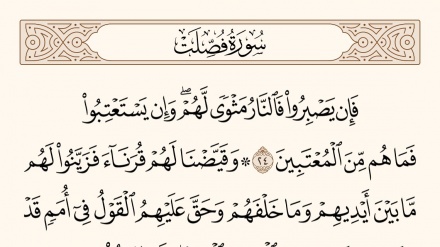 سُورَةُ فُصِّلَتْ
فَإِن يَصْبِرُوا۟ فَٱلنَّارُ مَثْوًى لَّهُمْ ۖ وَإِن يَسْتَعْتِبُوا۟
فَمَا هُم مِّنَ ٱلْمُعْتَبِينَ ٢٤ ۞ وَقَيَّضْنَا لَهُمْ قُرَنَآءَ فَزَيَّنُوا۟ لَهُم
مَّا بَيْنَ أَيْدِيهِمْ وَمَا خَلْفَهُمْ وَحَقَّ عَلَيْهِمُ ٱلْقَوْلُ فِىٓ أُمَمٍ قَدْ